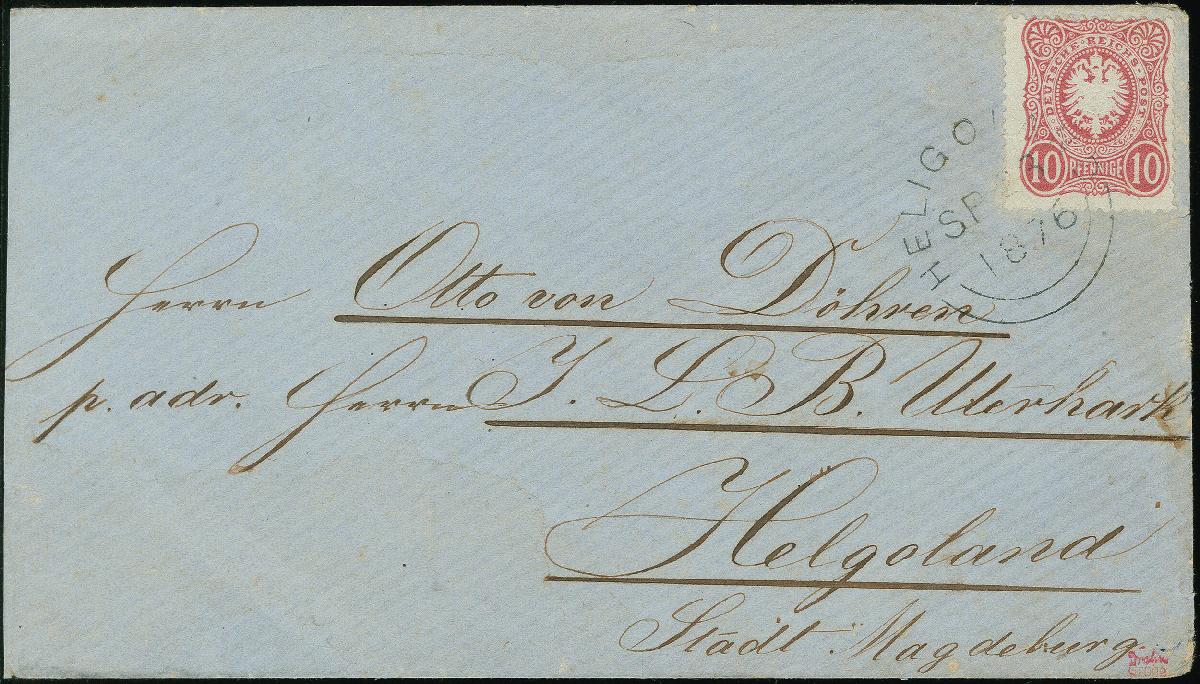 DEUTSCHE · REICHS · POST
10 PFENNIGE 10
HELIGO
SP
1876
Herrn Otto von Döhren
p. adr. Herrn J. L. B. Uterhark
Helgoland
Stadt Magdeburg.